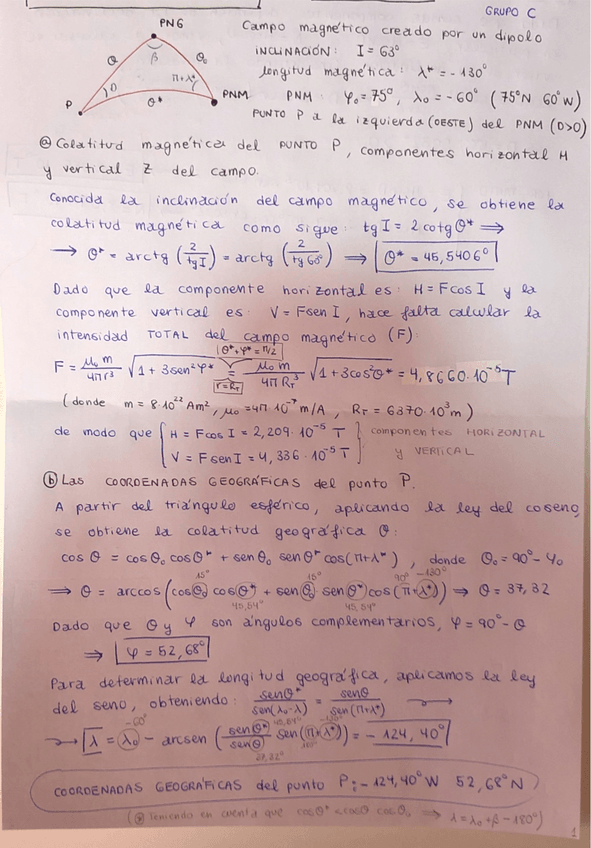 GRUPO C
PNG
θ β θ₀
D π+λ*
P θ* PNM
Campo magnético creado por un dipolo
INCLINACIÓN: I = 63º
longitud magnética: λ* = -130º
PNM: φ₀ = 75º, λ₀ = -60º (75ºN 60ºW)
PUNTO P a la izquierda (OESTE) del PNM (D>0)
ⓐ Colatitud magnética del PUNTO P, componentes horizontal H
y vertical Z del campo.
Conocida la inclinación del campo magnético, se obtiene la
colatitud magnética como sigue: tg I = 2 cotg θ* ⟹
→ θ* = arctg (2/tg I) = arctg (2/tg 63º) ⟹ θ* = 45,5406º
Dado que la componente horizontal es: H = F cos I y la
componente vertical es: V = F sen I, hace falta calcular la
intensidad TOTAL del campo magnético (F):
θ* + φ* = π/2
F = μ₀ m/4π r³ √1 + 3sen²φ* = μ₀ m/4π R_T³ √1 + 3cos²θ* = 4,8660·10⁻⁵ T
r = R_T
(donde m = 8·10²² Am², μ₀ = 4π 10⁻⁷ m/A, R_T = 6370·10³ m)
de modo que { H = F cos I = 2,209·10⁻⁵ T } componentes HORIZONTAL
V = F sen I = 4,336·10⁻⁵ T y VERTICAL
ⓑ Las COORDENADAS GEOGRÁFICAS del punto P.
A partir del triángulo esférico, aplicando la ley del coseno,
se obtiene la colatitud geográfica θ:
cos θ = cos θ₀ cos θ* + sen θ₀ sen θ* cos (π+λ*), donde θ₀ = 90º - φ₀
15º 15º 90º -130º
⟹ θ = arccos (cos θ₀ cos θ* + sen θ₀ · sen θ* cos (π+λ*)) ⟹ θ = 37,32
45,54º 45,54º
Dado que θ y φ son ángulos complementarios, φ = 90º - θ
⟹ φ = 52,68º
Para determinar la longitud geográfica, aplicamos la ley
del seno, obteniendo: sen θ*/sen(λ₀-λ) = sen θ/sen(π+λ*) →
-60º 45,54º -130º
→ λ = λ₀ - arcsen (sen θ*/sen θ sen (π+λ*)) = -124,40º
37,32º
COORDENADAS GEOGRÁFICAS del punto P: -124,40ºW 52,68ºN
teniendo en cuenta que cos θ* < cos θ cos θ₀ ⟹ λ = λ₀ + β - 180º)
1